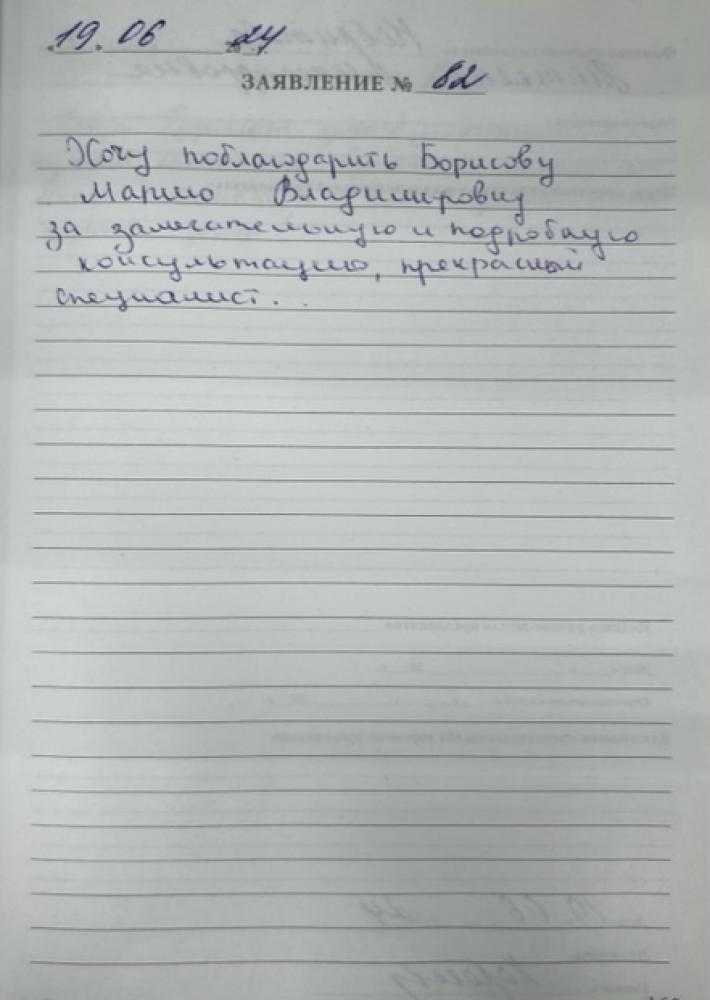 19. 06 2024
ЗАЯВЛЕНИЕ № 82
Хочу поблагодарить Борисову
Марию Владимировну
за замечательную и подробную
консультацию, прекрасный
специалист.